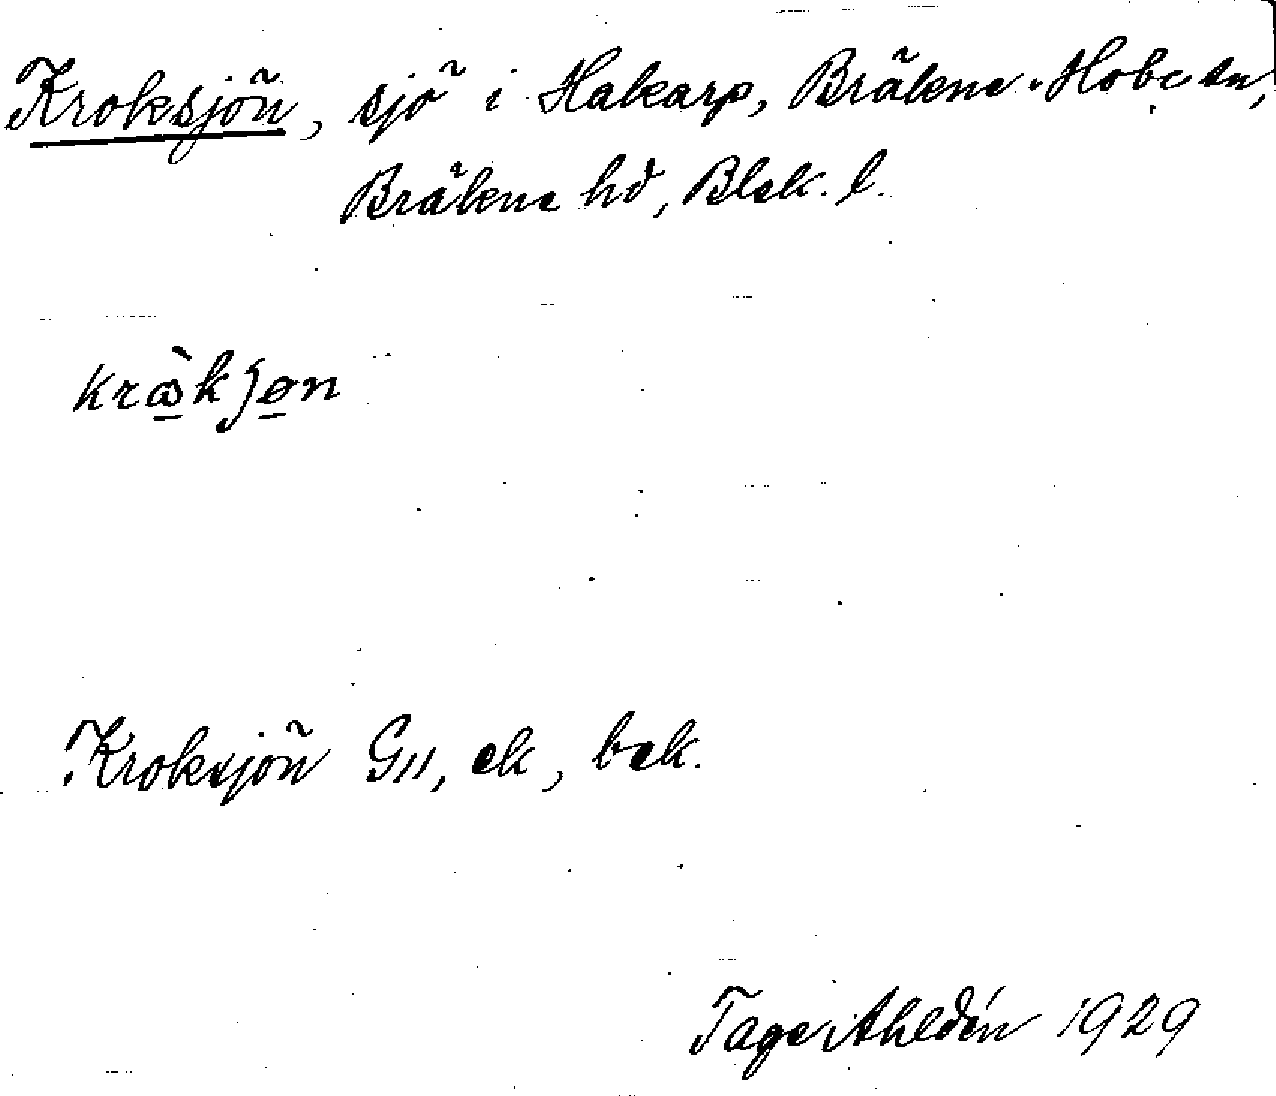 Kroksjön, sjö i Hakarp, Bräkne-Hoby sn,
Bräkne hd, Blek. l.
kròkʃøn
Kroksjön G11, ek, bek.
Tage Ahldén 1929